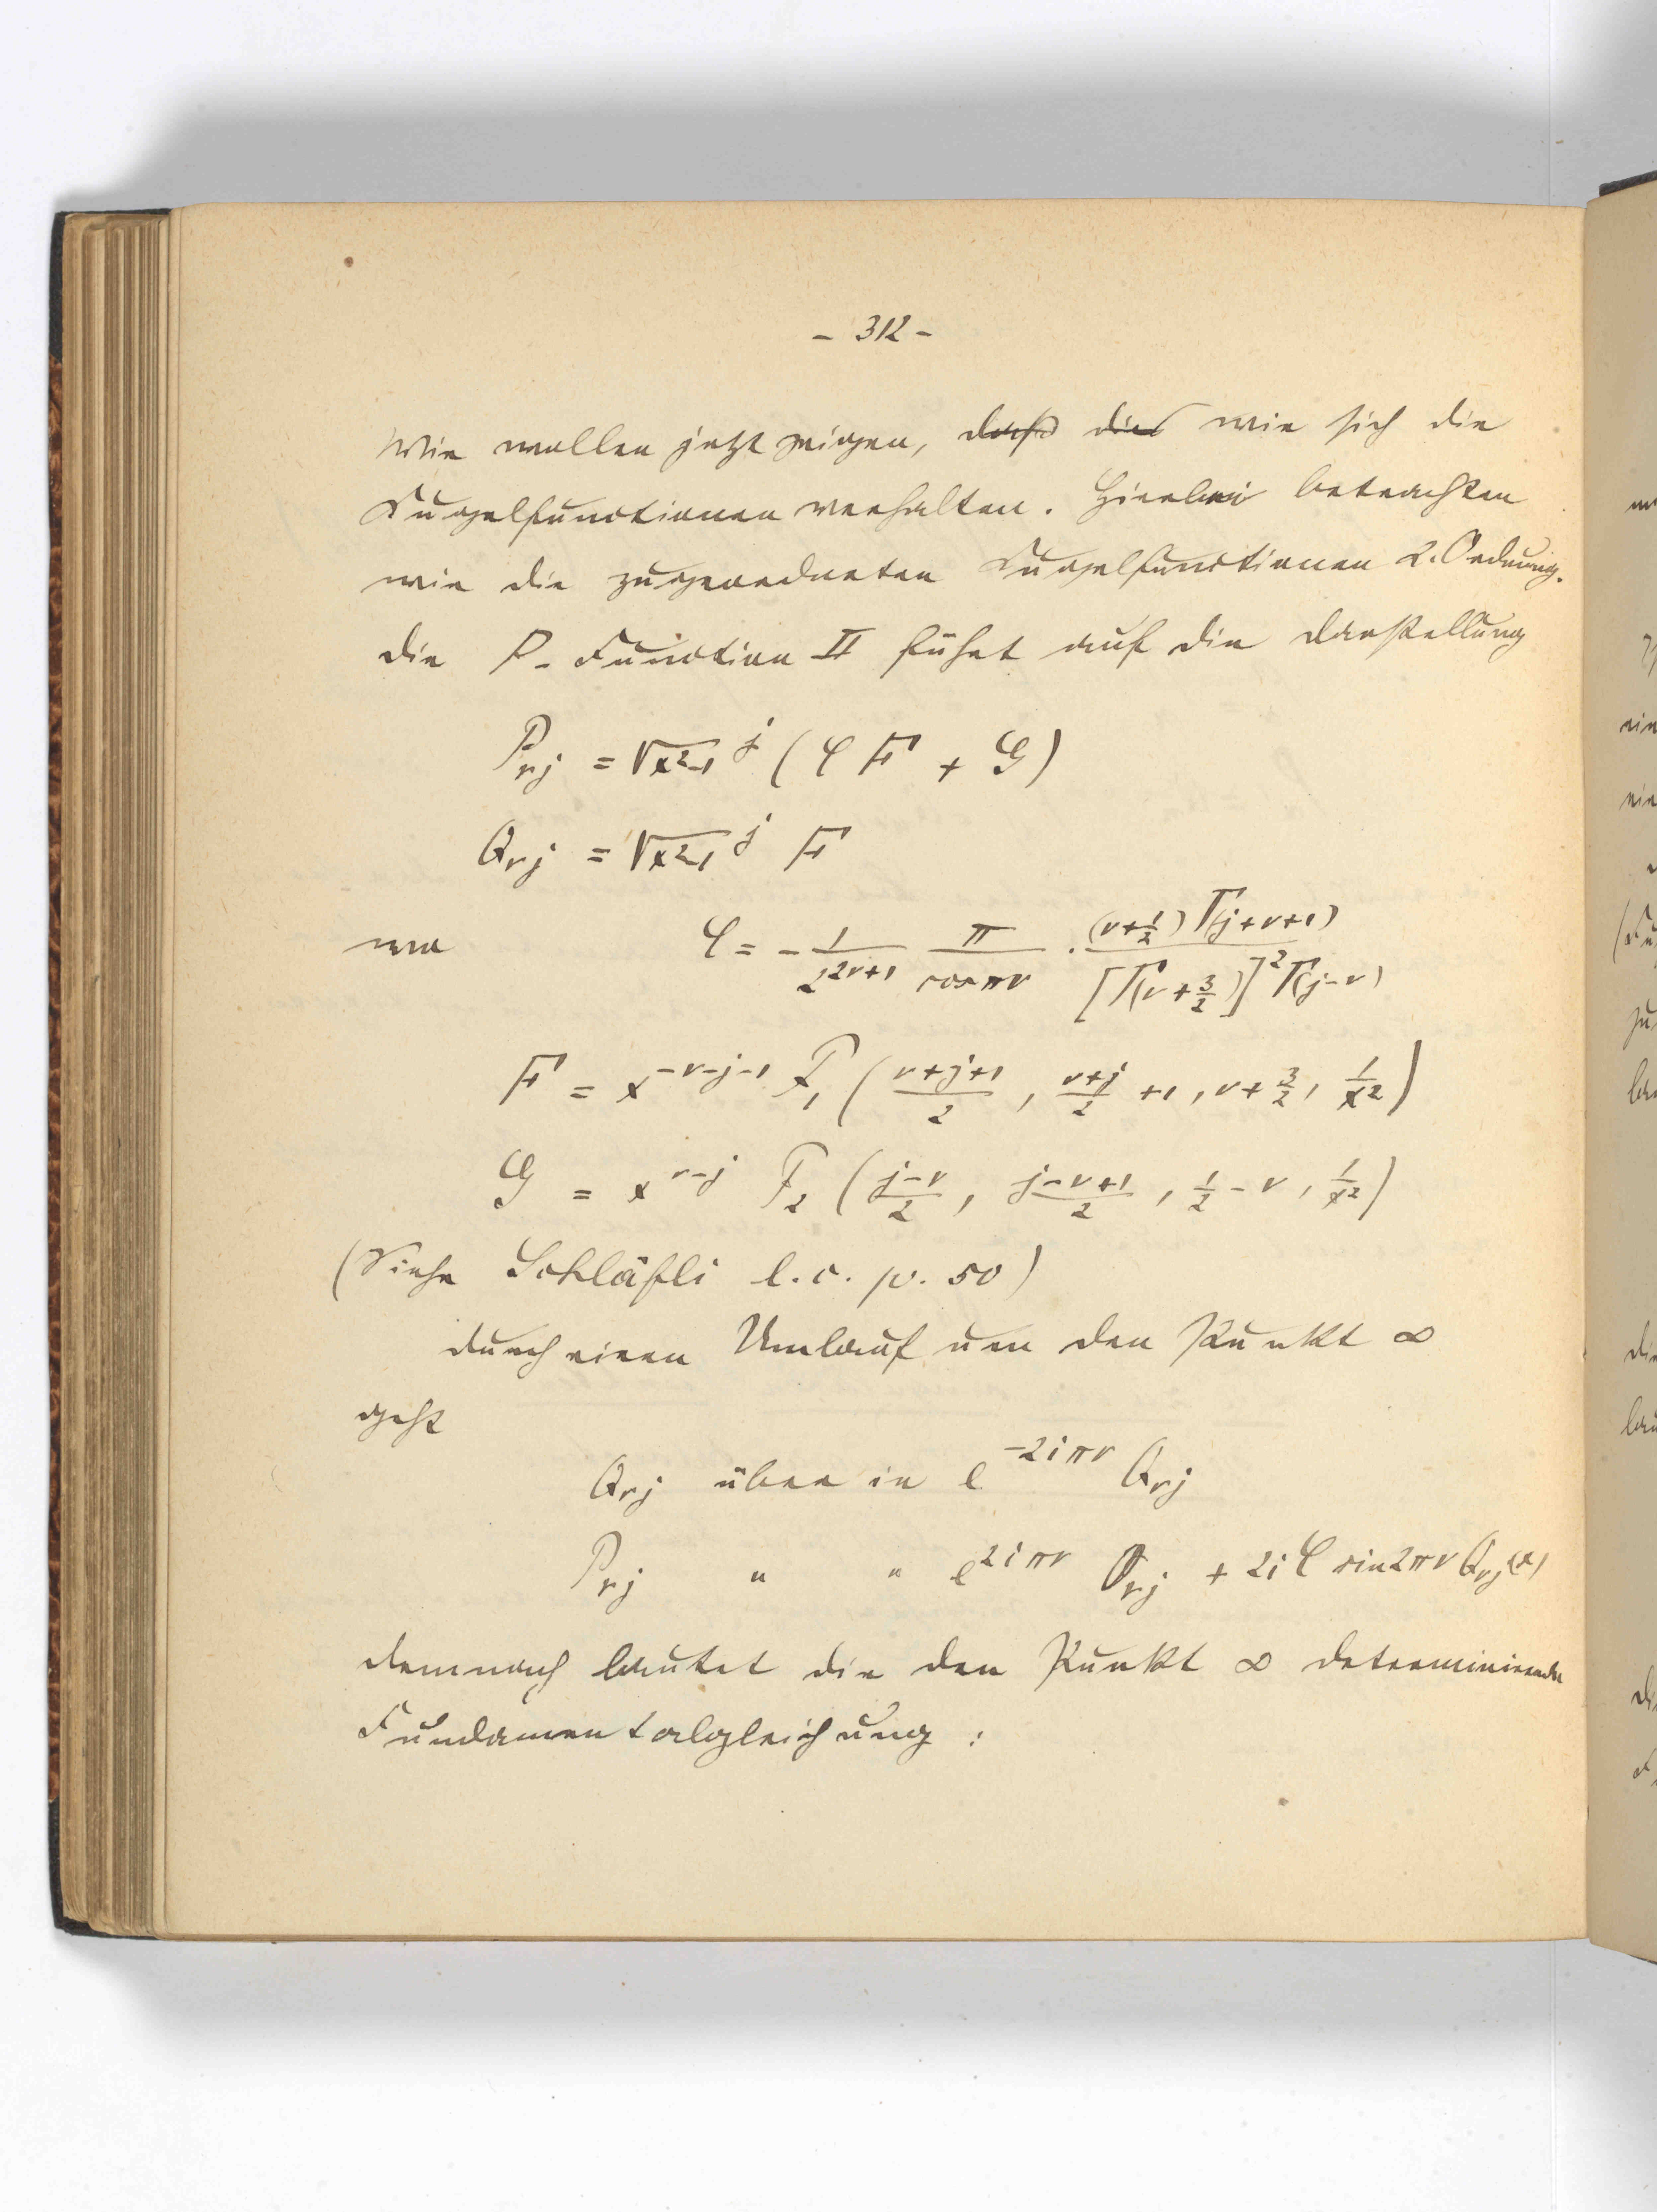 - 312 -
Wir wollen jetzt zeigen, daß dies wie sich die
Kugelfunctionen verhalten. Hierbei betrachten
wir die zugeordneten Kugelfunctionen 2. Ordnung.
Die P-Function II führt auf die Darstellung
P_{νj} = √(x²-1)^j (φ F + G)
Q_{νj} = √(x²-1)^j F
wo φ = - 1/2^{2ν+1} π/cos πν · (ν+1/2) Γ(j+ν+1) / [Γ(ν+3/2)]² Γ(j-ν)
F = x^{-ν-j-1} F₁ ( (ν+j+1)/2 , (ν+j)/2 +1, ν+3/2, 1/x² )
G = x^{ν-j} F₂ ( (j-ν)/2 , (j-ν+1)/2 , 1/2 - ν, 1/x² )
(Siehe Schläfli l.c. p. 50)
Durch einen Umlauf um den Punkt ∞
geht
Q_{νj} über in e^{-2iπν} Q_{νj}
P_{νj} " " e^{2iπν} P_{νj} + 2i φ sin 2πν Q_{νj}(x)
Demnach lautet die den Punkt ∞ determinirende
Fundamentalgleichung :